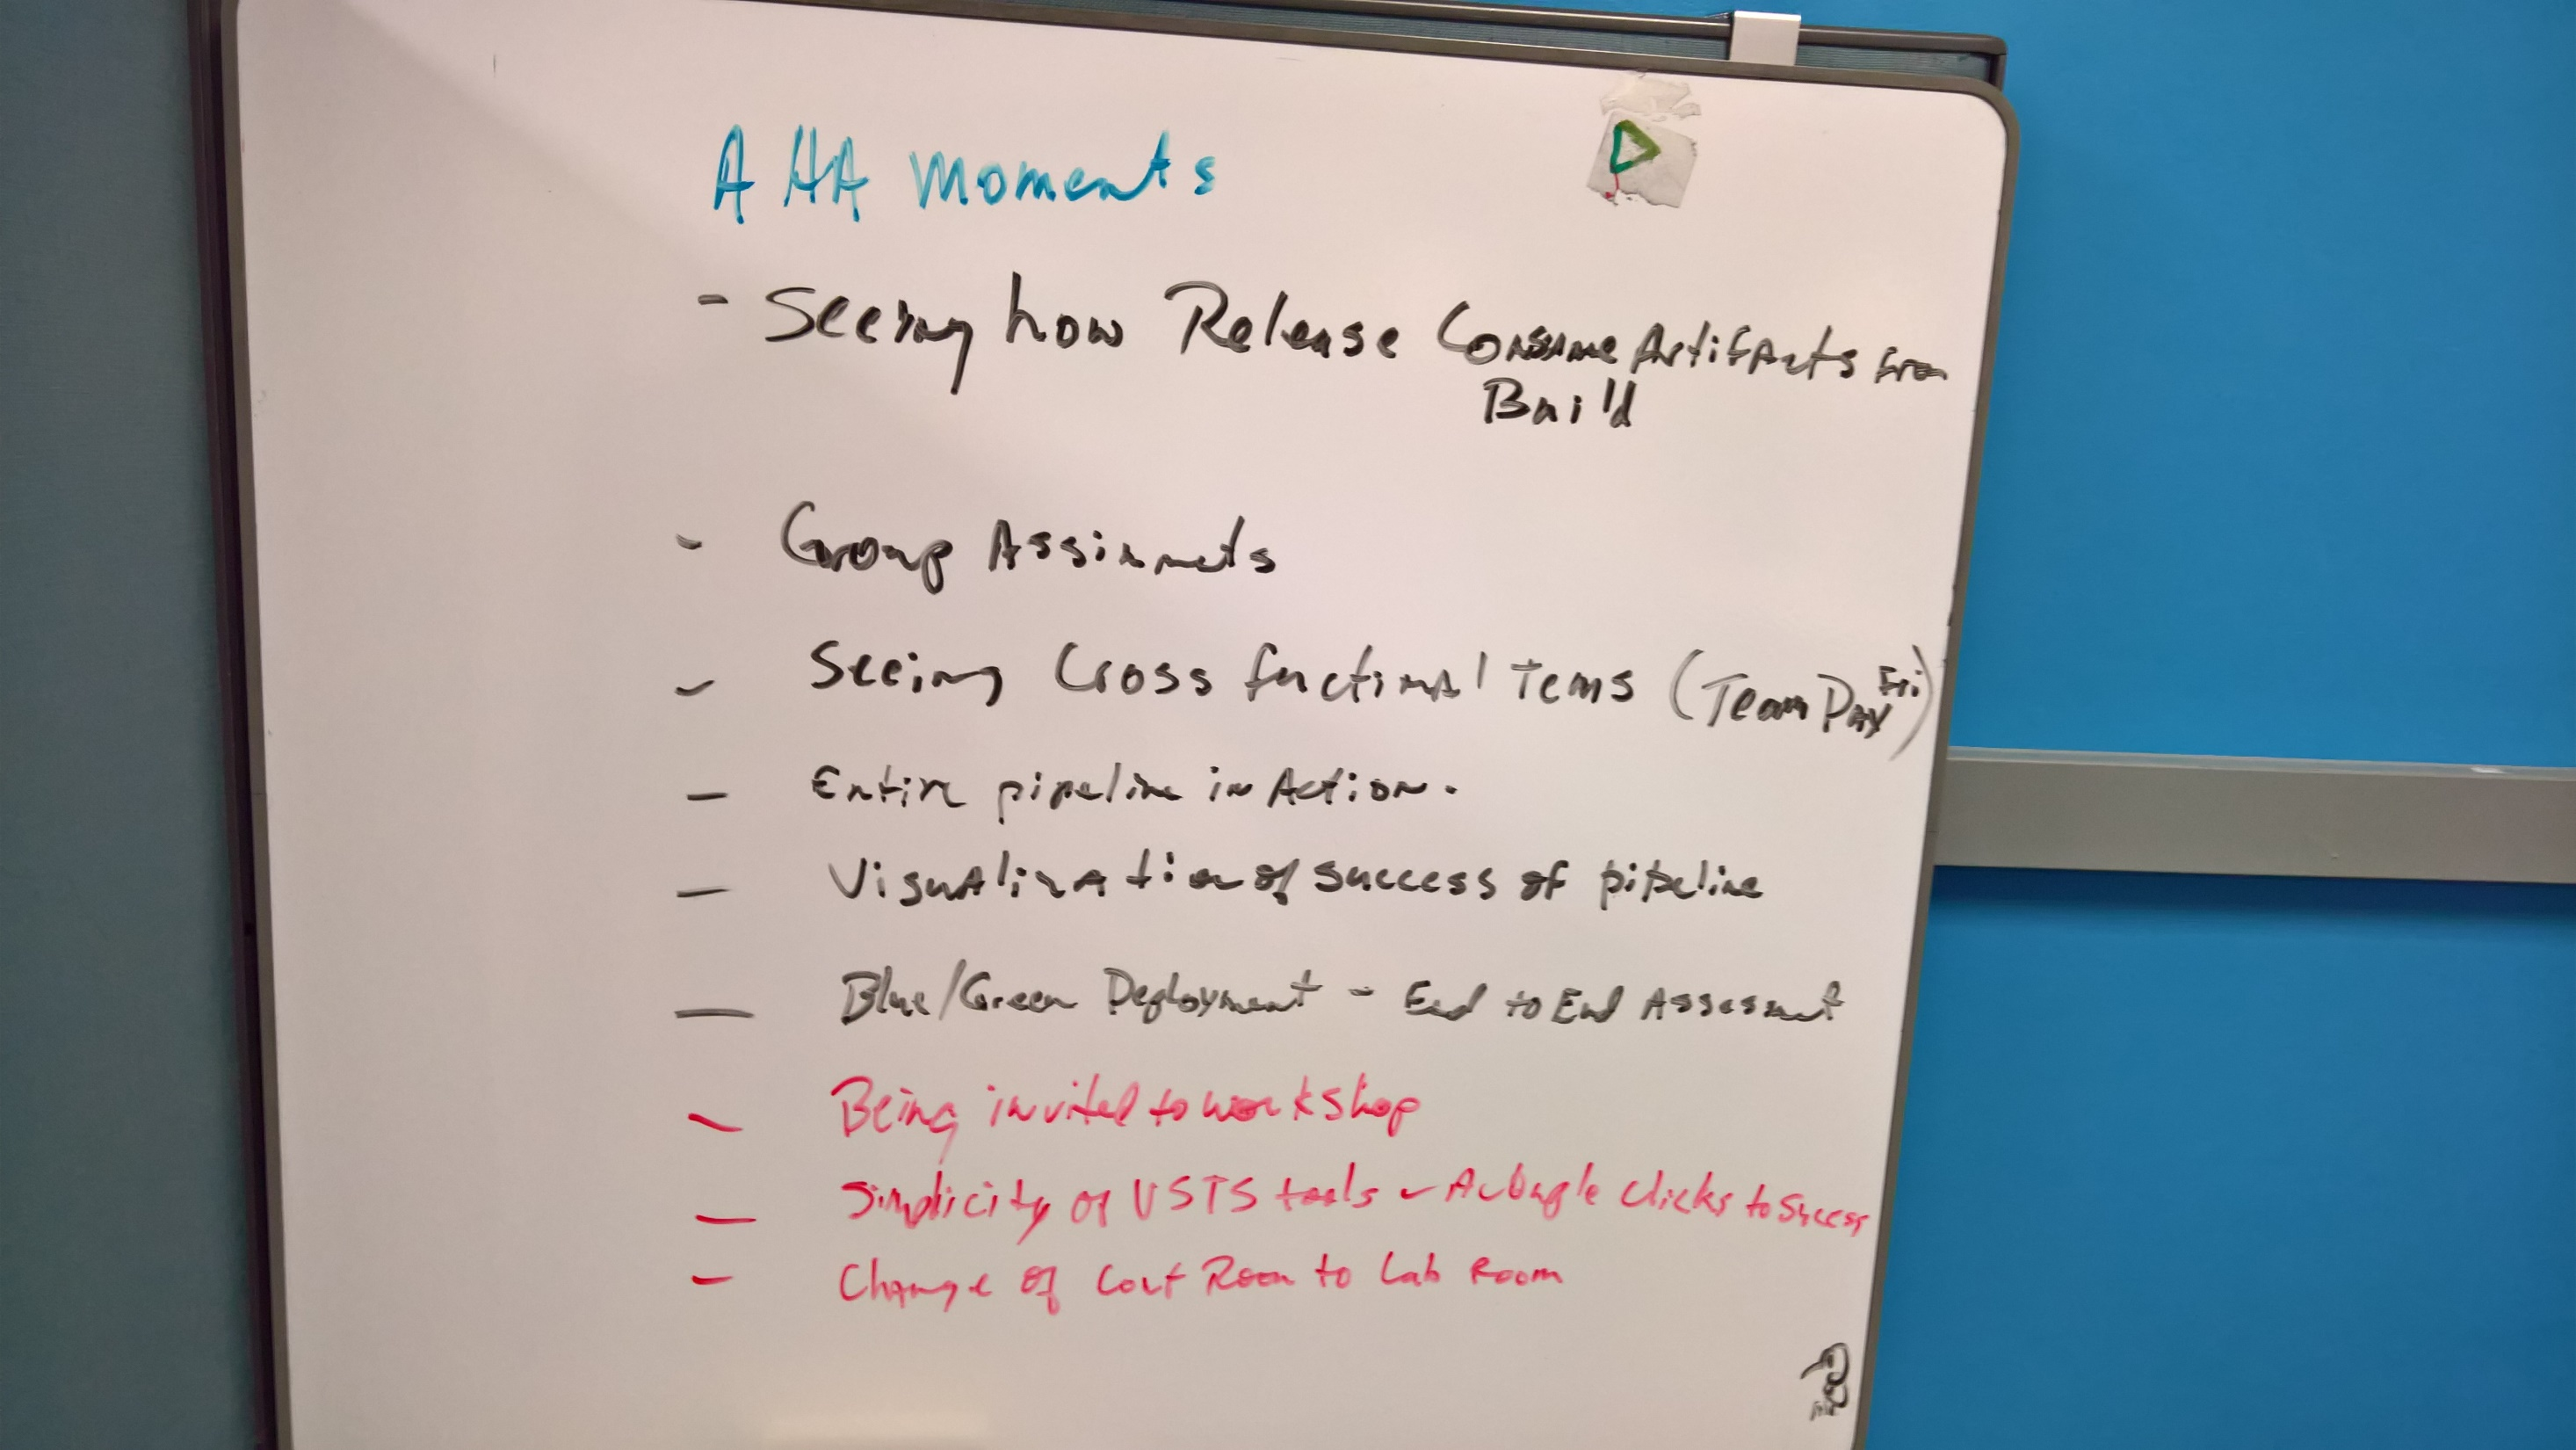 AHA Moments
- Seeing how Release Consume Artifacts from
Build
- Group Assinmets
- Seeing Cross functional Tems (Team Day Fri)
- Entire pipeline in Action.
- Visualization of success of pipeline
- Blue/Green Deployment - End to End Assessmt
- Being invited to workshop
- Simplicity of VSTS tools - clicks to success
- Change of Conf Room to Lab Room